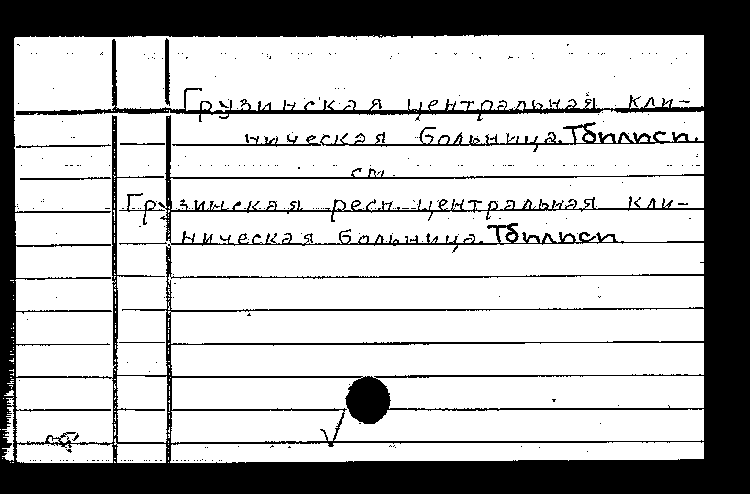 Грузинская центральная кли-
ническая больница. Тбилиси.
см.
Грузинская респ. центральная кли-
ническая больница. Тбилиси.